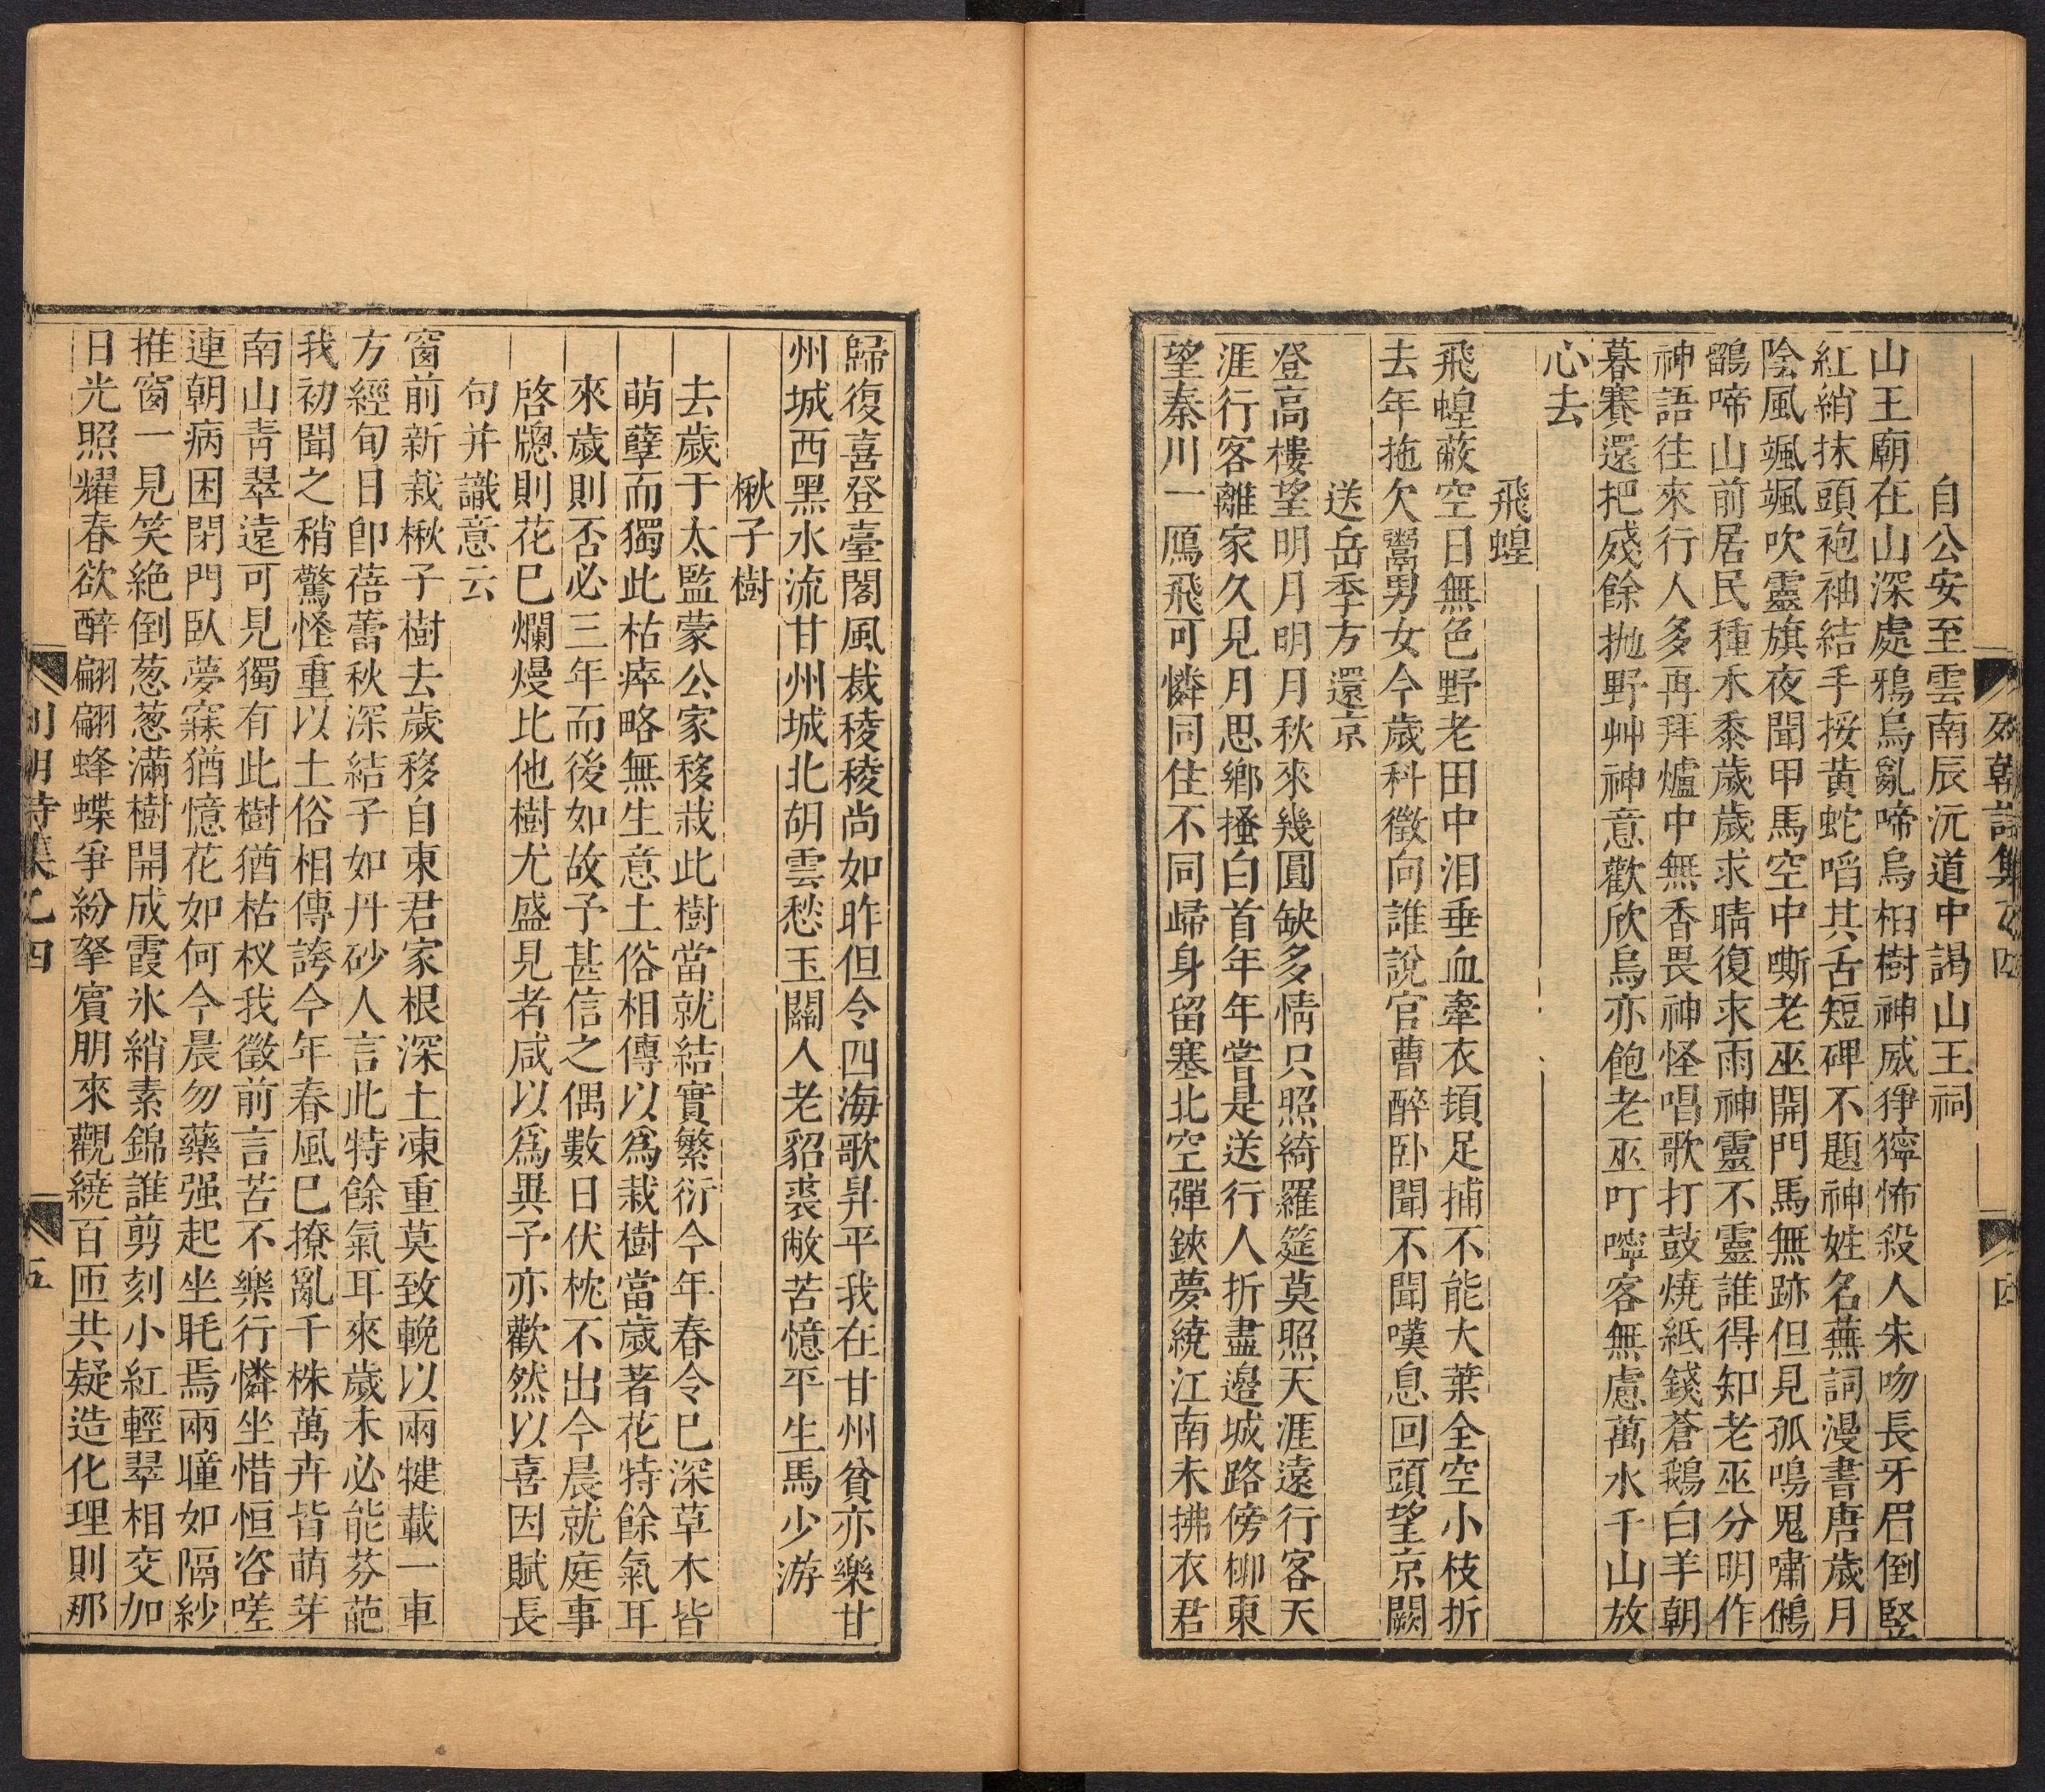 列朝詩集乙四
四
自公安至雲南辰沅道中謁山王祠
山王廟在山深處鴉烏亂啼烏桕樹神威猙獰怖殺人朱吻長牙眉倒竪
紅綃抹頭袍袖結手挼黄蛇㗖其舌短碑不題神姓名蕪詞漫書唐歲月
陰風颯颯吹靈旗夜聞甲馬空中嘶老巫開門馬無跡但見孤鳴鬼嘯鵂
鶹啼山前居民種禾黍歲歲求晴復求雨神靈不靈誰得知老巫分明作
神語往來行人多再拜爐中無香畏神怪唱歌打鼓燒紙錢蒼鵝白羊朝
暮賽還把殘餘抛野艸神意歡欣烏亦飽老巫叮嚀客無慮萬水千山放
心去
飛蝗
飛蝗蔽空日無色野老田中泪垂血牽衣頓足捕不能大葉全空小枝折
去年拖欠鬻男女今歲科徵向誰說官曹醉卧聞不聞嘆息回頭望京闕
送岳季方還京
登高樓望明月明月秋來幾圓缺多情只照綺羅筵莫照天涯遠行客天
涯行客離家久見月思鄉搔白首年年嘗是送行人折盡邉城路傍柳東
望秦川一鴈飛可憐同住不同歸身留塞北空彈鋏夢繞江南未拂衣君
歸復喜登臺閣風裁稜稜尚如昨但令四海歌昇平我在甘州貧亦樂甘
州城西黑水流甘州城北胡雲愁玉關人老貂裘敝苦憶平生馬少游
楸子樹
去歲于太監蒙公家移栽此樹當就結實繁衍今年春令巳深草木皆
萌孽而獨此枯瘁略無生意土俗相傳以為栽樹當歲著花特餘氣耳
來歲則否必三年而後如故予甚信之偶數日伏枕不出今晨就庭事
啓牕則花巳爛熳比他樹尤盛見者咸以爲異予亦歡然以喜因賦長
句并識意云
窗前新栽楸子樹去歲移自東君家根深土凍重莫致輓以兩犍載一車
方經旬日卽蓓蕾秋深結子如丹砂人言此特餘氣耳來歲未必能芬葩
我初聞之稍驚怪重以土俗相傳誇今年春風巳撩亂千株萬卉皆萌芽
南山青翠遠可見獨有此樹猶枯杈我徵前言苦不樂行憐坐惜恒咨嗟
連朝病困閉門臥夢寐猶憶花如何今晨勿藥强起坐眊焉兩瞳如隔紗
推窗一見笑絶倒葱葱滿樹開成霞氷綃素錦誰剪刻小紅輕翠相交加
日光照耀春欲醉翩翩蜂蝶爭紛拏賓朋來觀繞百匝共疑造化理則那
列朝詩集乙四
五